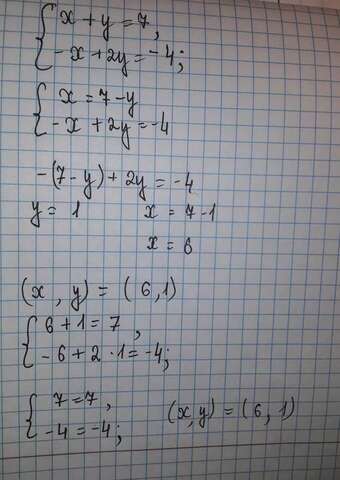 { x + y = 7,
- x + 2y = -4;
{ x = 7 - y
- x + 2y = -4
-(7 - y) + 2y = -4
y = 1 x = 7 - 1
x = 6
(x , y) = ( 6 , 1)
{ 6 + 1 = 7 ,
- 6 + 2 · 1 = -4;
{ 7 = 7 ,
-4 = -4; (x, y) = (6, 1)